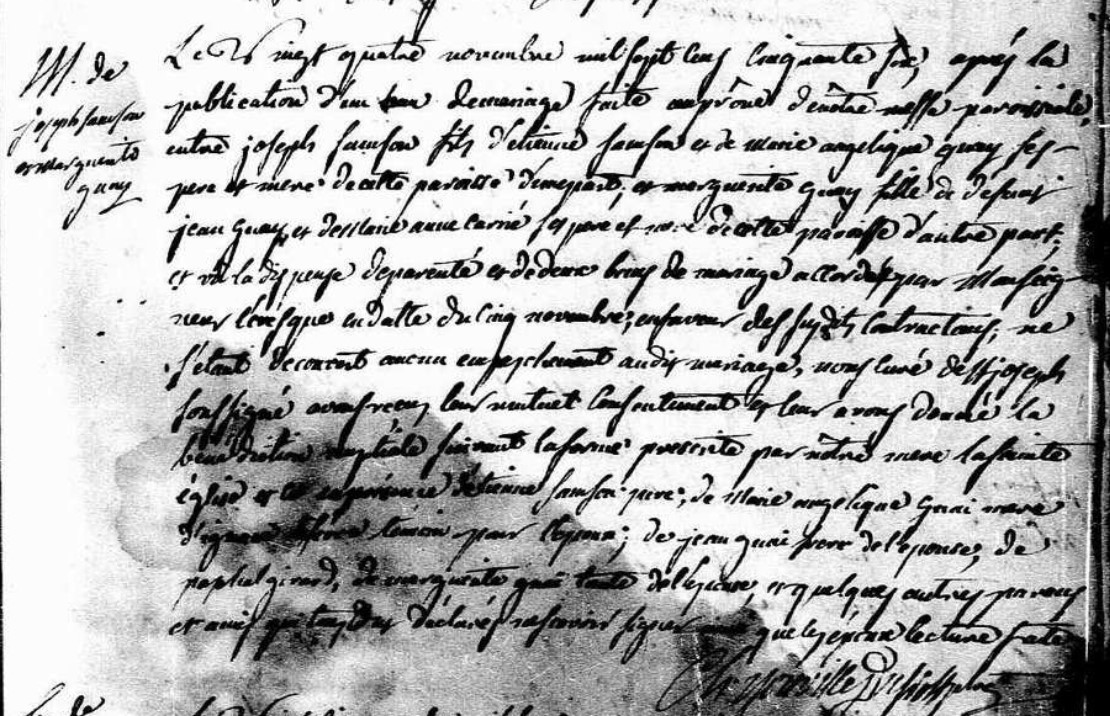 M. de
joseph samson
et marguerite
guay
Le vingt quatre novembre mil sept cens cinquante six, après la
publication d'un ban de mariage faite au prône de nôtre messe paroissiale,
entre joseph samson fils d'etienne samson et de Marie angelique guay ses
pere et mere de cette paroisse d'une part; et marguerite guay fille de defunt
jean guay et de Marie anne carrié ses pere et mere de cette paroisse d'autre part;
et vû la dispense de parenté et de deux bans de mariage accordée par Monseig
neur l'evesque en datte du cinq novembre, en faveur des sujdits contractans; ne
s'étant decouvert aucun empeschement audit mariage, nous curé de st joseph
soussigné avons receu leur mutuel consentement et leur avons donné la
bénédiction nuptiale suivant la forme prescrite par nôtre mere la sainte
église et le en présence d'etienne samson pere, de Marie angelique guai mere
témoin pour l'epoux; de jean guai frere de l'epouse, de
raphael girard, de marguerite guai tante de l'epouse, et quelques autres parens
et amis qui tous ont déclaré ne sçavoir signer que les époux lecture faite